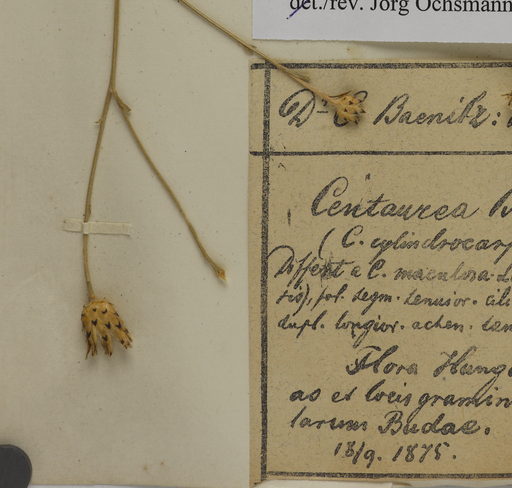 det./rev. Jörg Ochsmann
Dr C. Baenitz:
Centaurea
( C. cylindrocarp
Differt a C. maculosa
tis), fol. segm. tenuior. cili
dupl. longior. achen.
Flora Hung
as et locis gramin
larum Budae.
18/9. 1875.